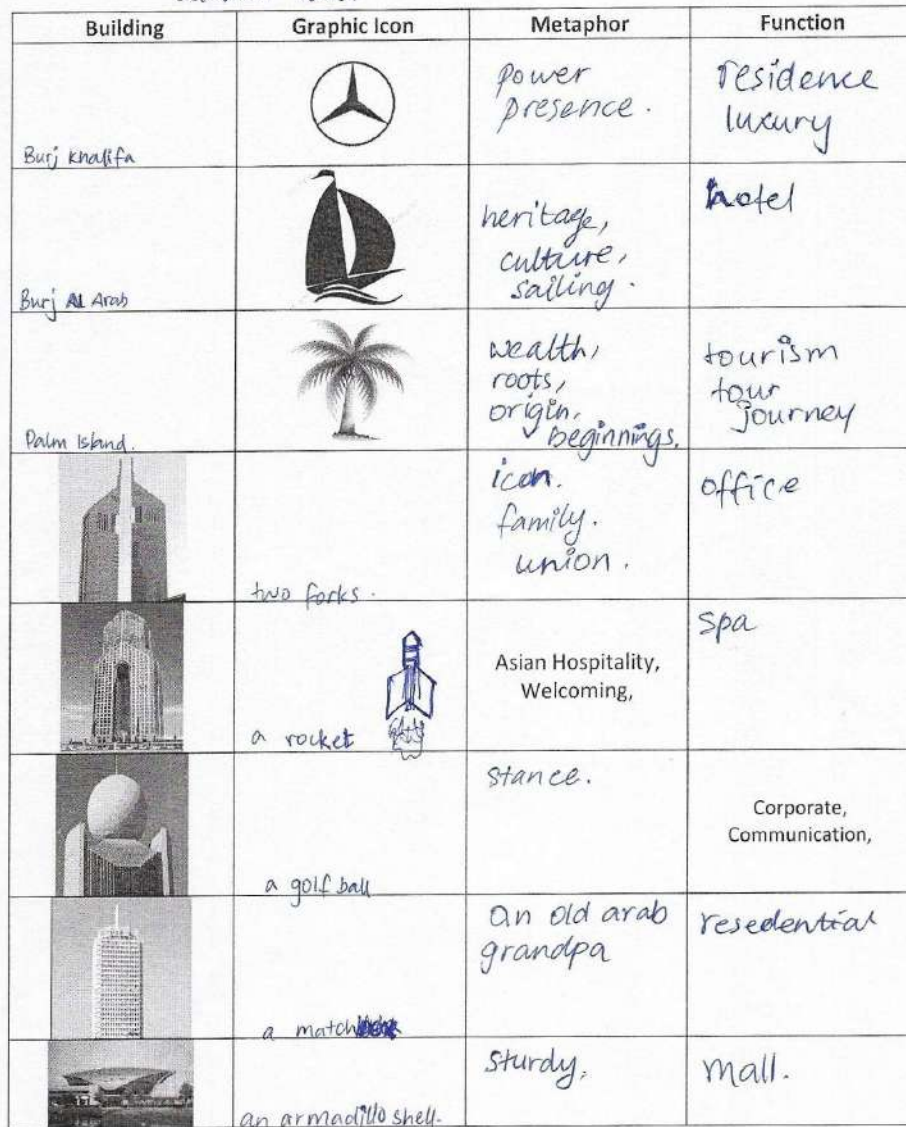 Building Graphic Icon Metaphor Function
Burj Khalifa
power
presence.
residence
luxury
Burj Al Arab
heritage,
culture,
sailing.
hotel
Palm Island.
wealth,
roots,
origin,
beginnings.
tourism
tour
journey
two forks.
icon.
family.
union.
office
a rocket
Asian Hospitality,
Welcoming,
spa
a golf ball
stance.
Corporate,
Communication,
a match
an old arab
grandpa
resedential
an armadillo shell.
sturdy,
mall.